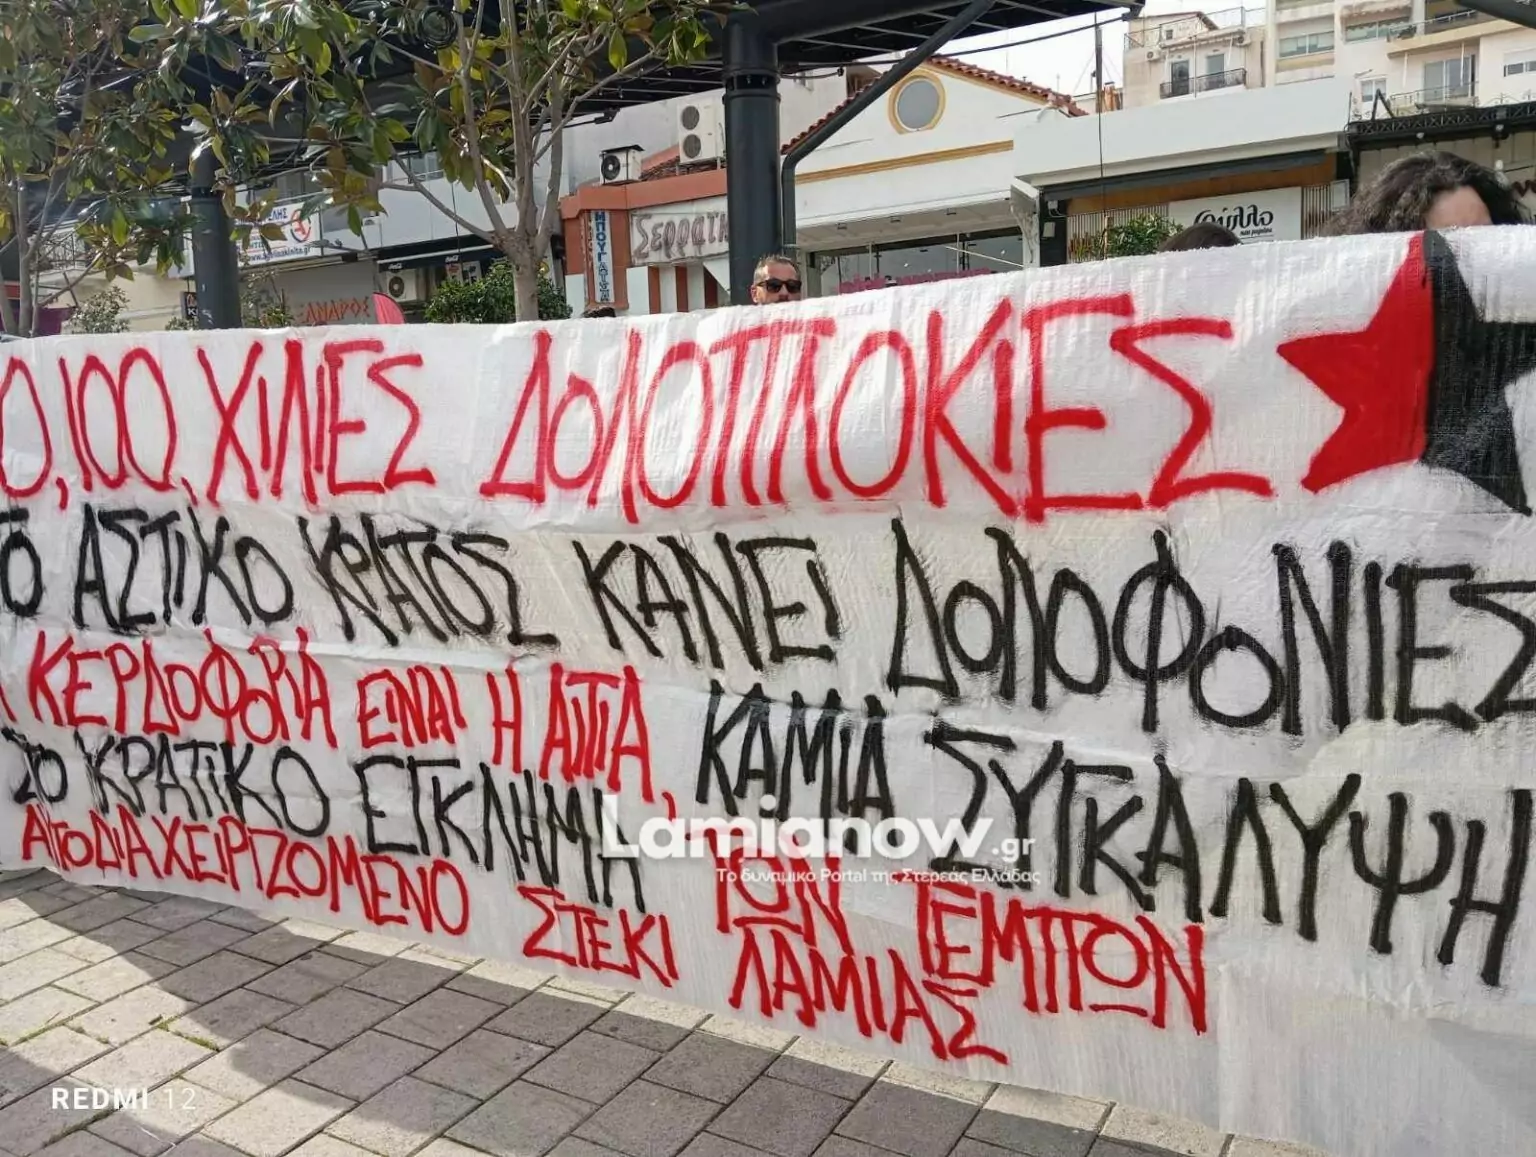 0,100,ΧΙΛΙΕΣ ΔΟΛΟΠΛΟΚΙΕΣ
ΤΟ ΑΣΤΙΚΟ ΚΡΑΤΟΣ ΚΑΝΕΙ ΔΟΛΟΦΟΝΙΕΣ
Η ΚΕΡΔΟΦΟΡΙΑ ΕΙΝΑΙ Η ΑΙΤΙΑ, ΚΑΜΙΑ ΣΥΓΚΑΛΥΨΗ
ΣΤΟ ΚΡΑΤΙΚΟ ΕΓΚΛΗΜΑ ΤΩΝ ΤΕΜΠΩΝ
ΑΥΤΟΔΙΑΧΕΙΡΙΖΟΜΕΝΟ ΣΤΕΚΙ ΛΑΜΙΑΣ
Lamianow.gr
Το δυναμικό Portal της Στερεάς Ελλάδας
REDMI 12
ΜΠΟΥΓΑΤΣΑ
Φύλλο